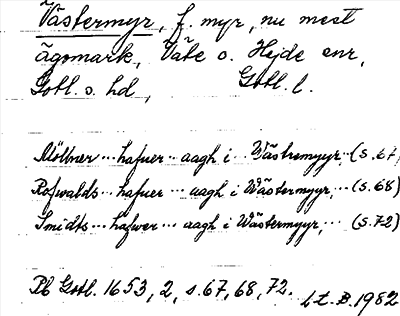 Västermyr, f. myr, nu mest
ägomark, Väte o. Hejde snr,
Gotl. s. hd, Gotl. l.
Möllner ... hafuer .. aagh i .. Wästermyyr, (s. 67)
Rofwalds ... hafuer ... aagh i Wästermyyr, ... (s. 68)
Smidts ... hafwer ... aagh i Wästermyyr, ... (s. 72)
Pb Gotl. 1653, 2, s. 67, 68, 72.
1982